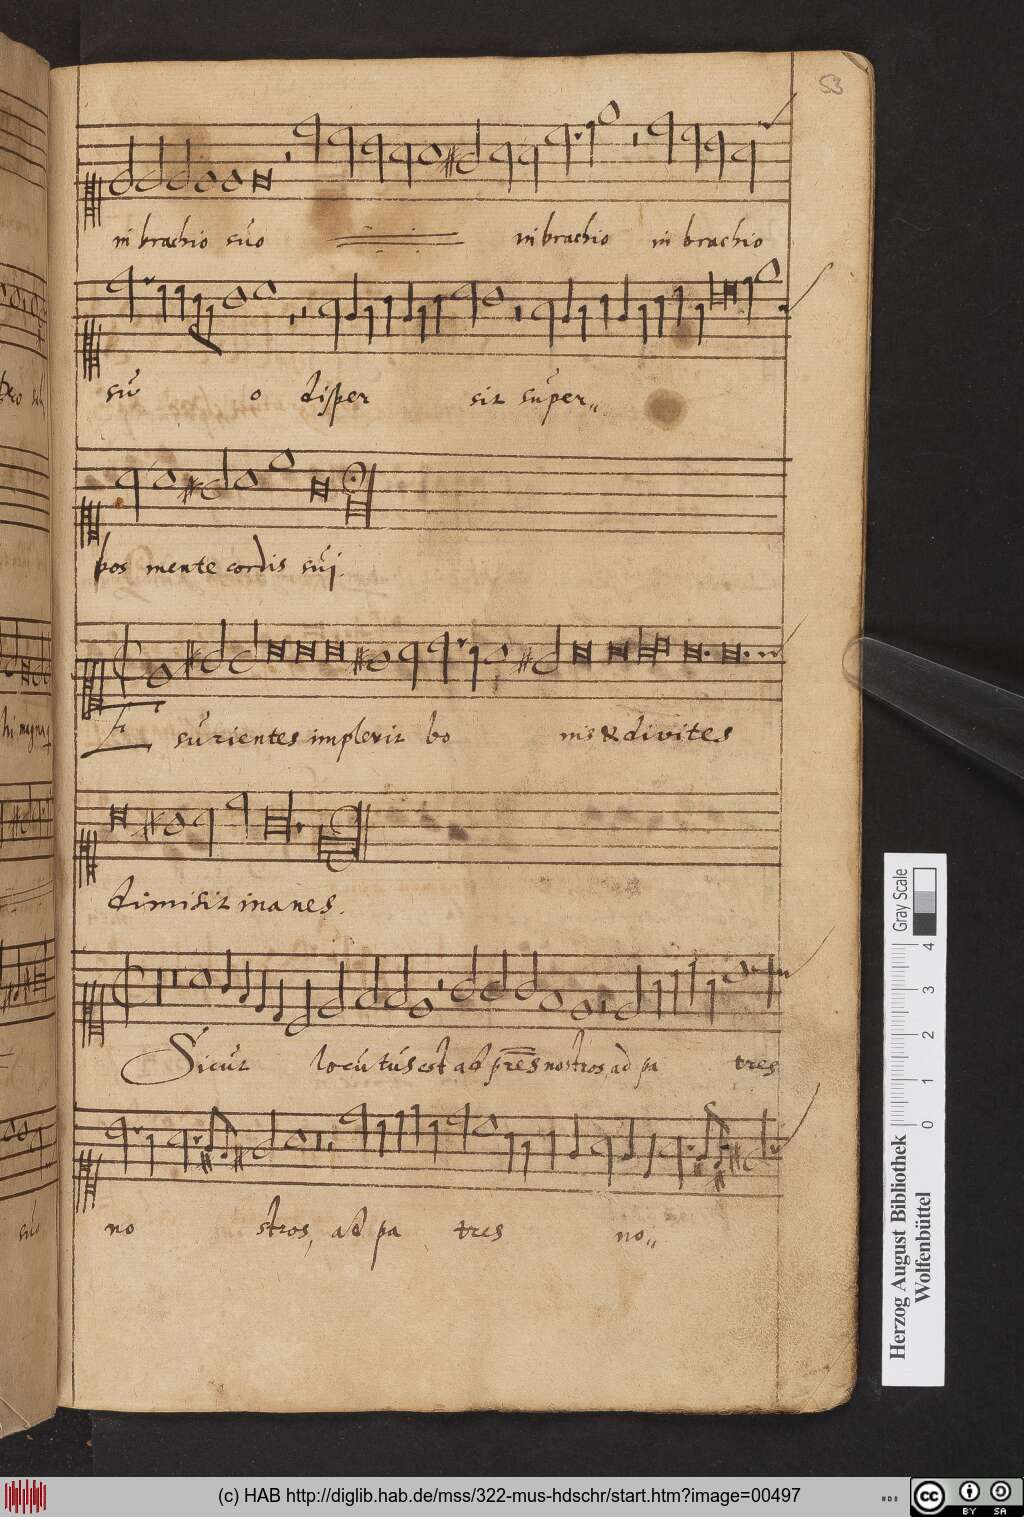 53
in brachio suo in brachio in brachio
su o disper sit super„
bos mente cordis sui.
Esurientes implevit bo nis & divites
dimisit inanes.
Sicut locutus est ab pres nostros, ad pa tres
no stros, ad pa tres no„
Gray Scale
0 1 2 3 4
Herzog August Bibliothek
Wolfenbüttel
(c) HAB http://diglib.hab.de/mss/322-mus-hdschr/start.htm?image=00497
cc BY SA